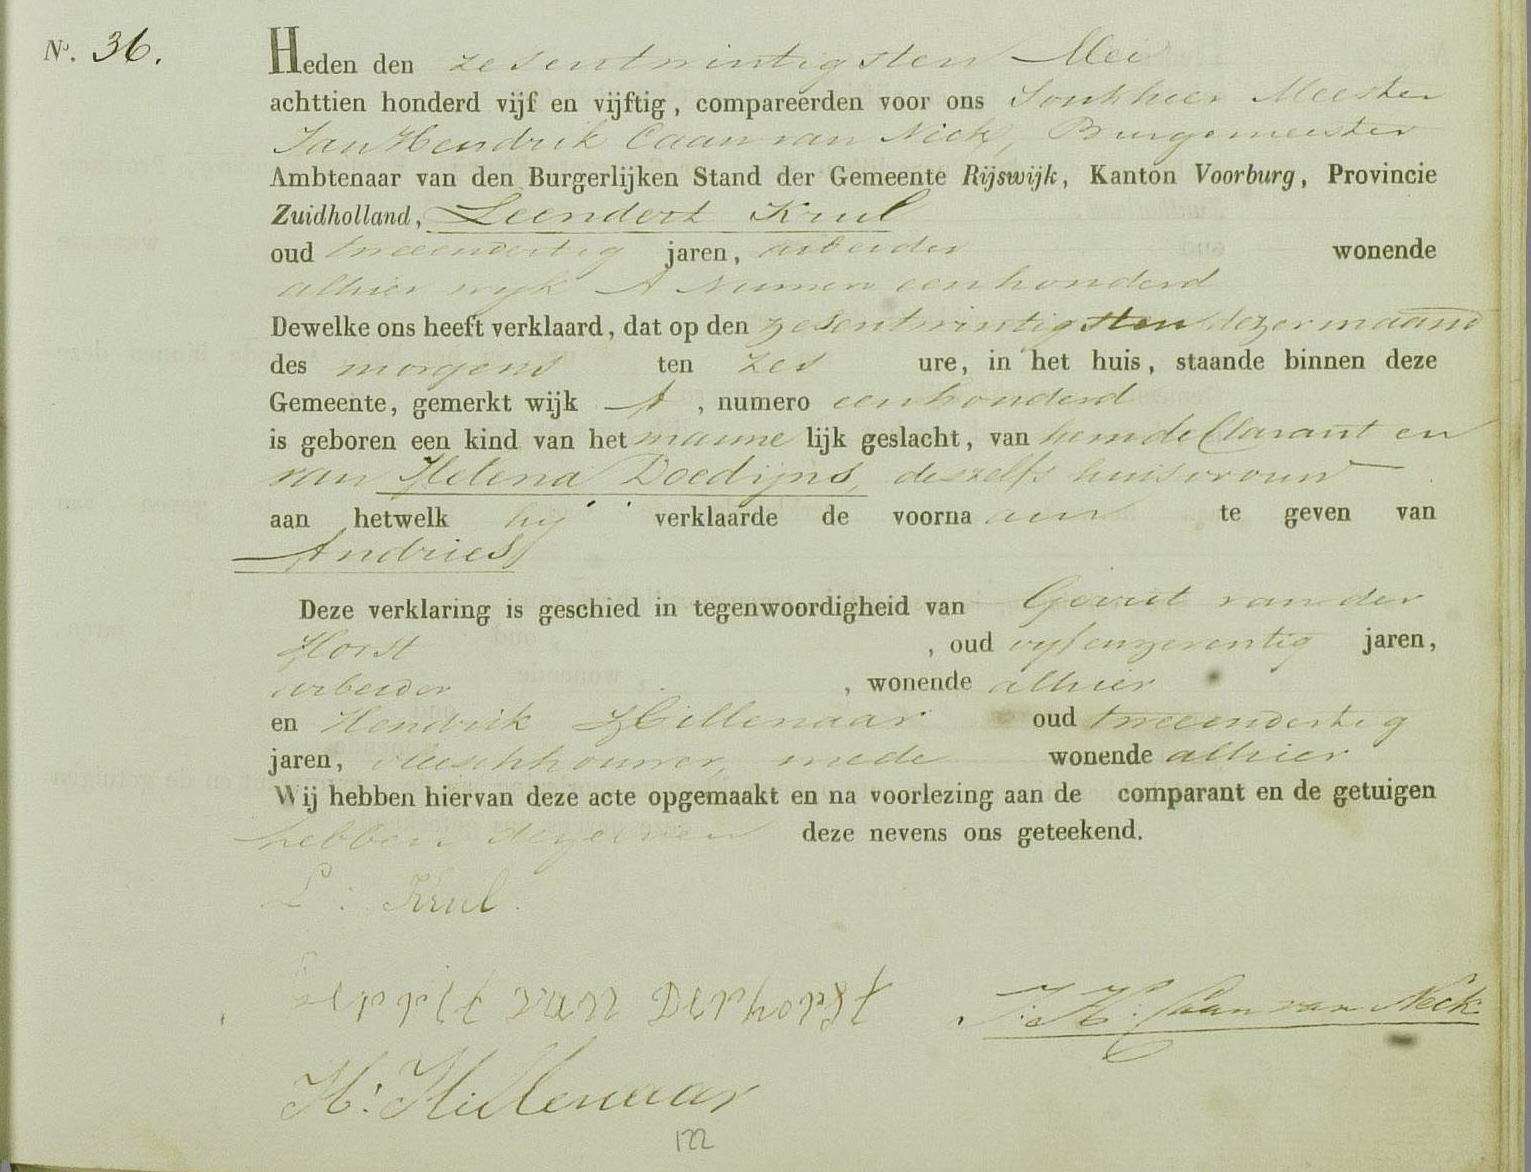 No. 36.
Heden den zesentwintigsten Mei
achttien honderd vijf en vijftig, compareerden voor ons Jonkheer Meester
Jan Hendrik Caan van Neck, Burgemeester
Ambtenaar van den Burgerlijken Stand der Gemeente Rijswijk, Kanton Voorburg, Provincie
Zuidholland, Leendert Krul
oud tweeendertig jaren, arbeider wonende
alhier wyk A Numero eenhonderd
Dewelke ons heeft verklaard, dat op den zesentwintigsten dezer maand
des morgens ten zes ure, in het huis, staande binnen deze
Gemeente, gemerkt wijk A, numero eenhonderd
is geboren een kind van het manne lijk geslacht, van hem de Clarant en
van Helena Doedijns, deszelfs huisvrouw
aan hetwelk hij verklaarde de voorna am te geven van
Andries
Deze verklaring is geschied in tegenwoordigheid van Gerrit van der
Horst, oud vyfenzeventig jaren,
arbeider, wonende alhier
en Hendrik Hillenaar oud tweeendertig
jaren, vleeschhouwer, mede wonende alhier
Wij hebben hiervan deze acte opgemaakt en na voorlezing aan de comparant en de getuigen
hebben dezelven deze nevens ons geteekend.
L: Krul.
Gerrit van Derhorst
J: H: Caan van Neck
H: Hillenaar
122